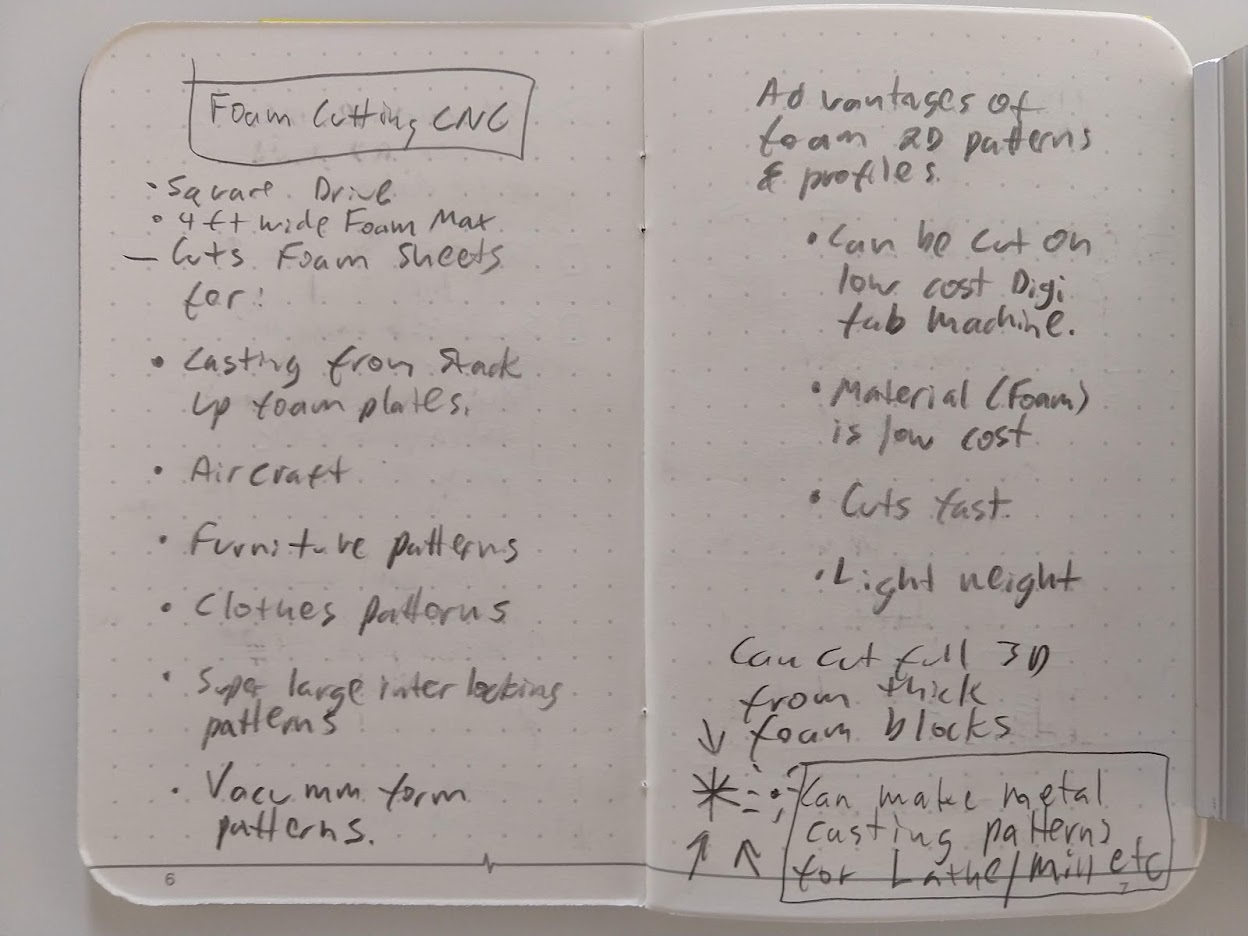 Foam Cutting CNC
• Square Drive
• 4ft wide Foam Max
— Cuts Foam Sheets
for:
• Casting from Stack
up foam plates.
• Aircraft
• Furniture patterns
• Clothes patterns
• Super large inter locking
patterns
• Vacumm form
patterns.
6
Advantages of
foam 2D patterns
& profiles.
• Can be cut on
low cost Digi
fab machine.
• Material (Foam)
is low cost
• Cuts fast.
• Light weight
Can cut full 3D
from thick
foam blocks
Can make metal
casting patterns
for Lathe/Mill etc
7